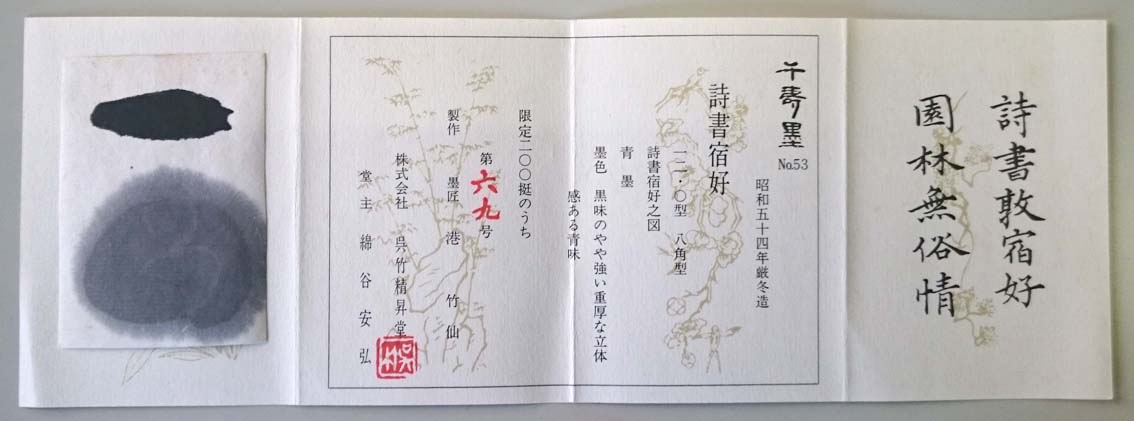 詩書敦宿好
園林無俗情
千寿墨
No.53
昭和五十四年厳冬造
詩書宿好
一二・〇型 八角型
詩書宿好之図
青墨
墨色 黒味のやや強い重厚な立体
感ある青味
限定二〇〇挺のうち
第六九号
製作 墨匠 港竹仙
株式会社 呉竹精昇堂
堂主 綿谷安弘
呉竹